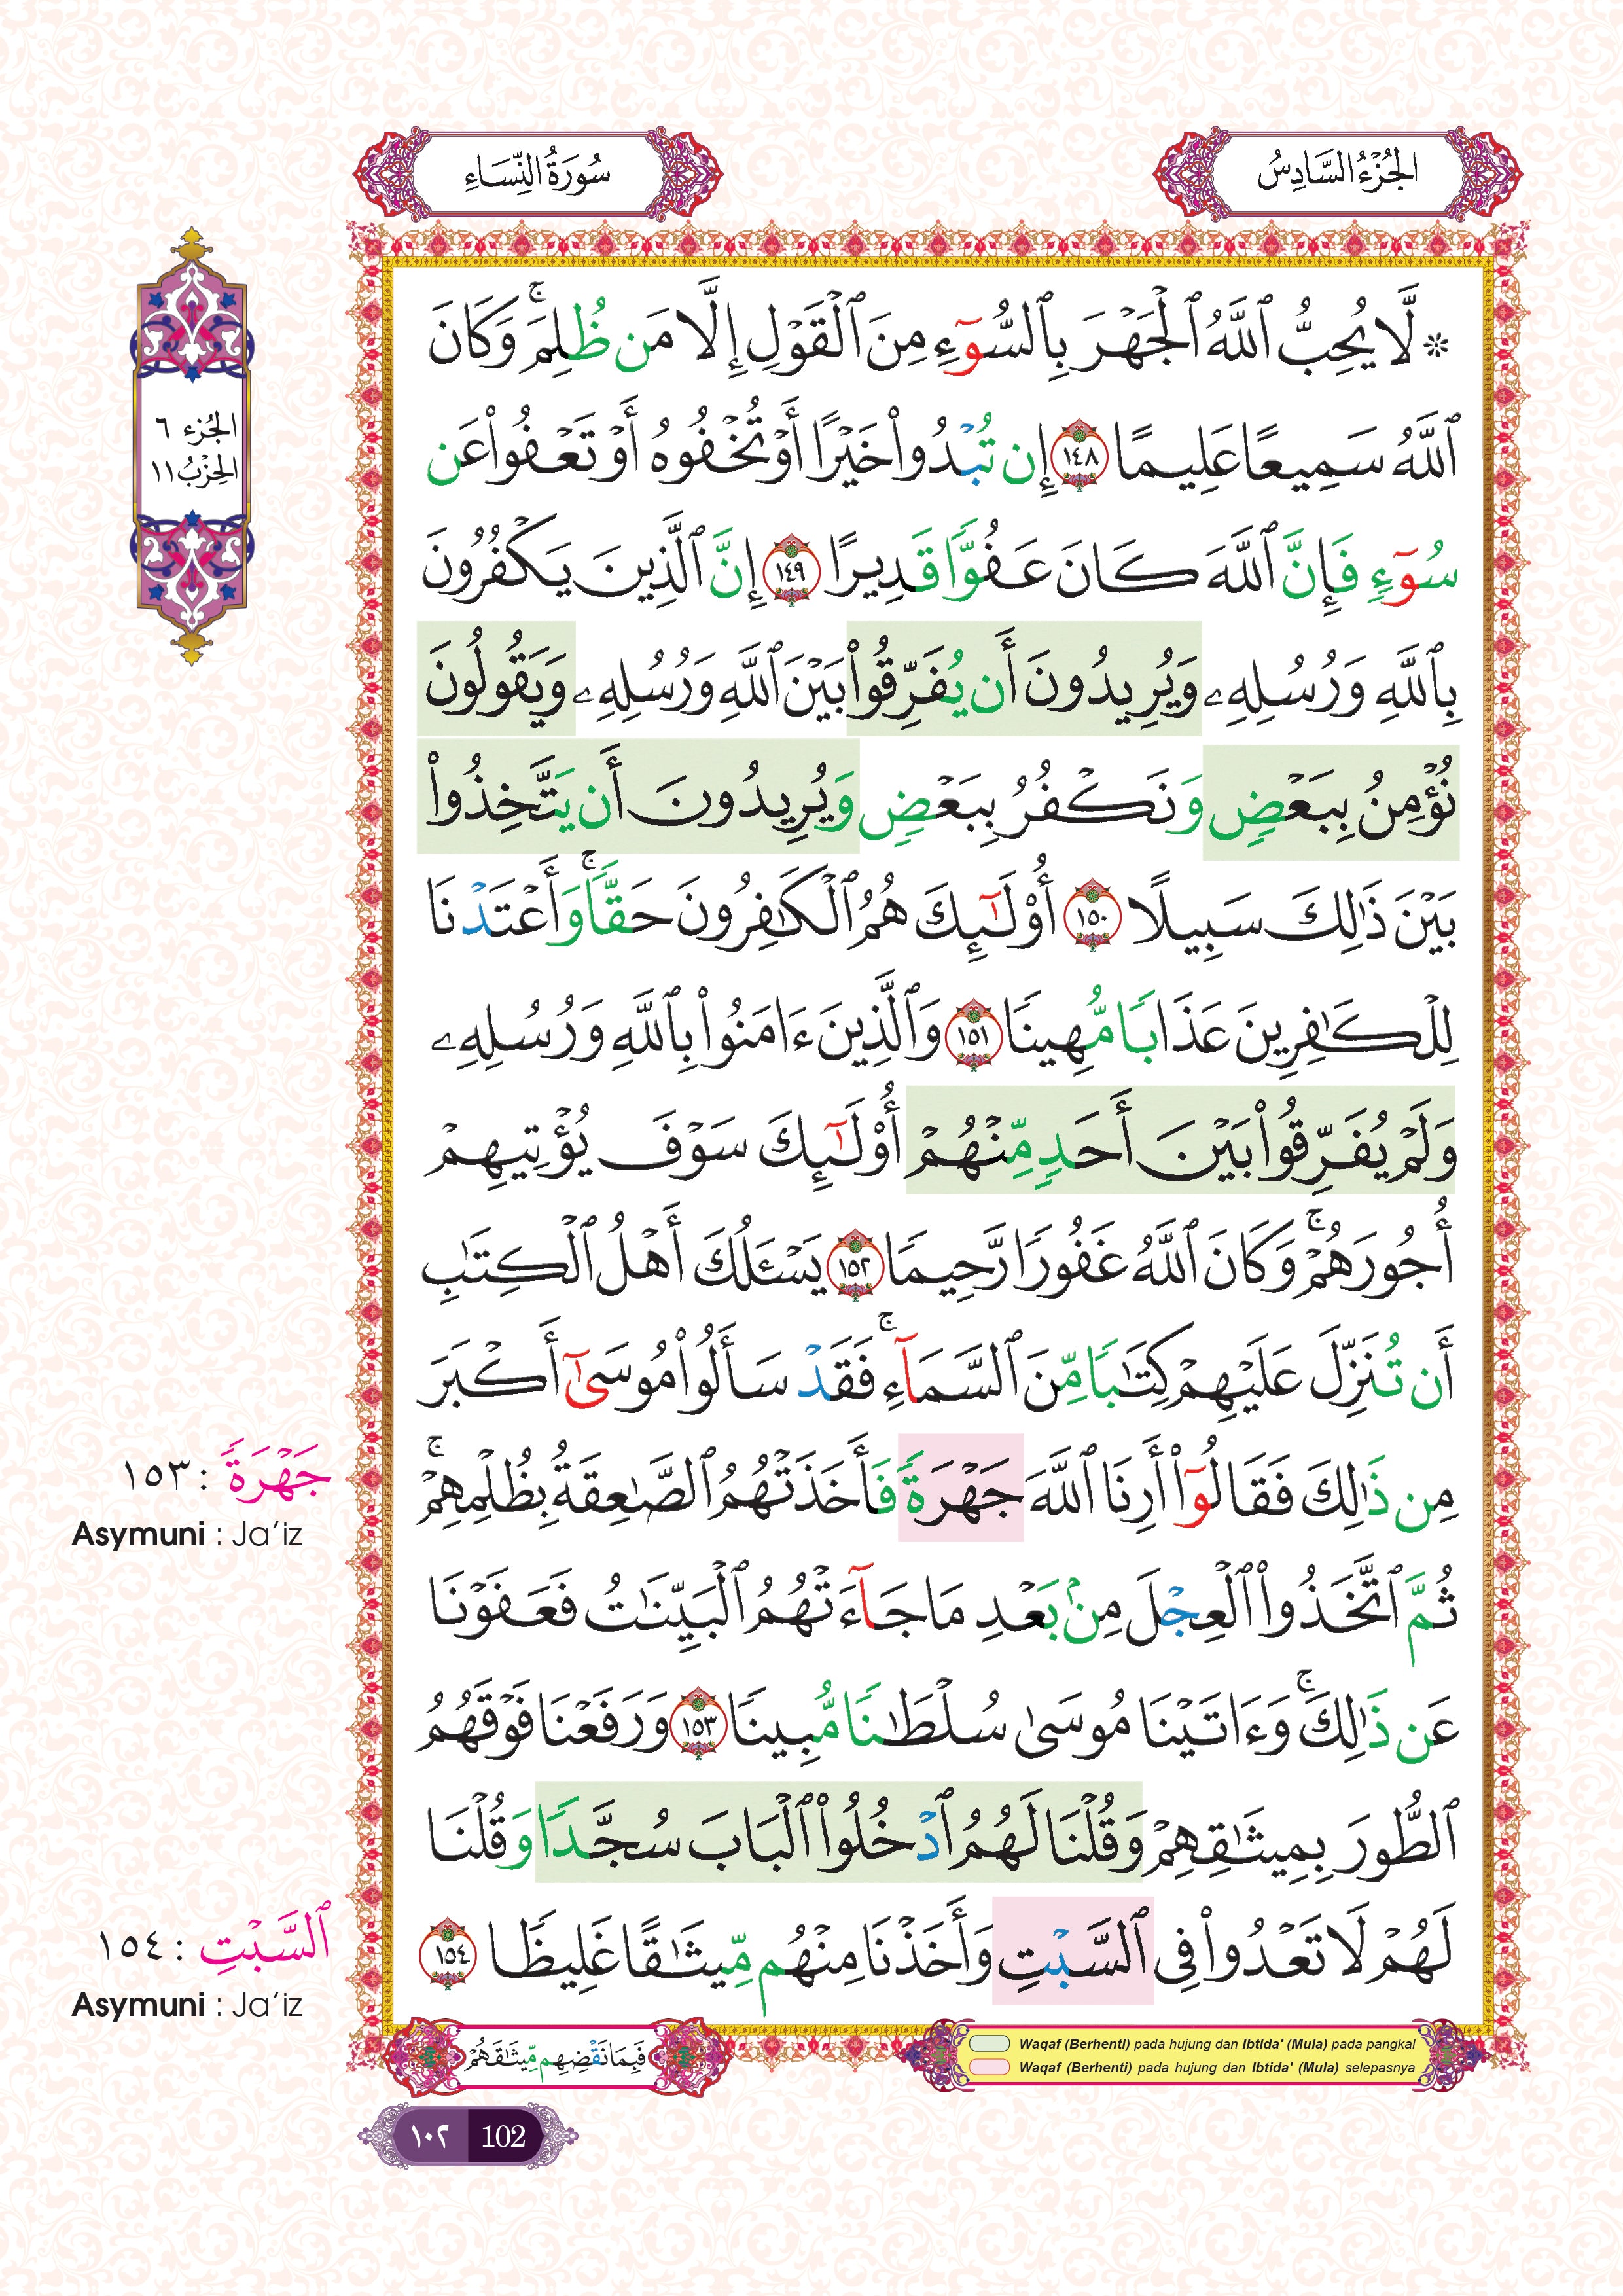 الجُزْءُ السَّادِسُ
سُورَةُ النِّسَاءِ
الجُزء ٦
الحِزْبُ ١١
۞ لَّا يُحِبُّ ٱللَّهُ ٱلْجَهْرَ بِٱلسُّوٓءِ مِنَ ٱلْقَوْلِ إِلَّا مَن ظُلِمَۚ وَكَانَ
ٱللَّهُ سَمِيعًا عَلِيمًا ١٤٨ إِن تُبْدُوا۟ خَيْرًا أَوْ تُخْفُوهُ أَوْ تَعْفُوا۟ عَن
سُوٓءٍ فَإِنَّ ٱللَّهَ كَانَ عَفُوًّا قَدِيرًا ١٤٩ إِنَّ ٱلَّذِينَ يَكْفُرُونَ
بِٱللَّهِ وَرُسُلِهِۦ وَيُرِيدُونَ أَن يُفَرِّقُوا۟ بَيْنَ ٱللَّهِ وَرُسُلِهِۦ وَيَقُولُونَ
نُؤْمِنُ بِبَعْضٍ وَنَكْفُرُ بِبَعْضٍ وَيُرِيدُونَ أَن يَتَّخِذُوا۟
بَيْنَ ذَٰلِكَ سَبِيلًا ١٥٠ أُو۟لَـٰٓئِكَ هُمُ ٱلْكَـٰفِرُونَ حَقًّاۚ وَأَعْتَدْنَا
لِلْكَـٰفِرِينَ عَذَابًا مُّهِينًا ١٥١ وَٱلَّذِينَ ءَامَنُوا۟ بِٱللَّهِ وَرُسُلِهِۦ
وَلَمْ يُفَرِّقُوا۟ بَيْنَ أَحَدٍ مِّنْهُمْ أُو۟لَـٰٓئِكَ سَوْفَ يُؤْتِيهِمْ
أُجُورَهُمْۚ وَكَانَ ٱللَّهُ غَفُورًا رَّحِيمًا ١٥٢ يَسْـَٔلُكَ أَهْلُ ٱلْكِتَـٰبِ
أَن تُنَزِّلَ عَلَيْهِمْ كِتَـٰبًا مِّنَ ٱلسَّمَآءِۚ فَقَدْ سَأَلُوا۟ مُوسَىٰٓ أَكْبَرَ
مِن ذَٰلِكَ فَقَالُوٓا۟ أَرِنَا ٱللَّهَ جَهْرَةً فَأَخَذَتْهُمُ ٱلصَّـٰعِقَةُ بِظُلْمِهِمْۚ
ثُمَّ ٱتَّخَذُوا۟ ٱلْعِجْلَ مِنۢ بَعْدِ مَا جَآءَتْهُمُ ٱلْبَيِّنَـٰتُ فَعَفَوْنَا
عَن ذَٰلِكَۚ وَءَاتَيْنَا مُوسَىٰ سُلْطَـٰنًا مُّبِينًا ١٥٣ وَرَفَعْنَا فَوْقَهُمُ
ٱلطُّورَ بِمِيثَـٰقِهِمْ وَقُلْنَا لَهُمُ ٱدْخُلُوا۟ ٱلْبَابَ سُجَّدًا وَقُلْنَا
لَهُمْ لَا تَعْدُوا۟ فِى ٱلسَّبْتِ وَأَخَذْنَا مِنْهُم مِّيثَـٰقًا غَلِيظًا ١٥٤
جَهْرَةً : ١٥٣
Asymuni : Ja'iz
ٱلسَّبْتِ : ١٥٤
Asymuni : Ja'iz
فَبِمَا نَقْضِهِم مِّيثَـٰقَهُمْ
Waqaf (Berhenti) pada hujung dan Ibtida' (Mula) pada pangkal
Waqaf (Berhenti) pada hujung dan Ibtida' (Mula) selepasnya
١٠٢ 102